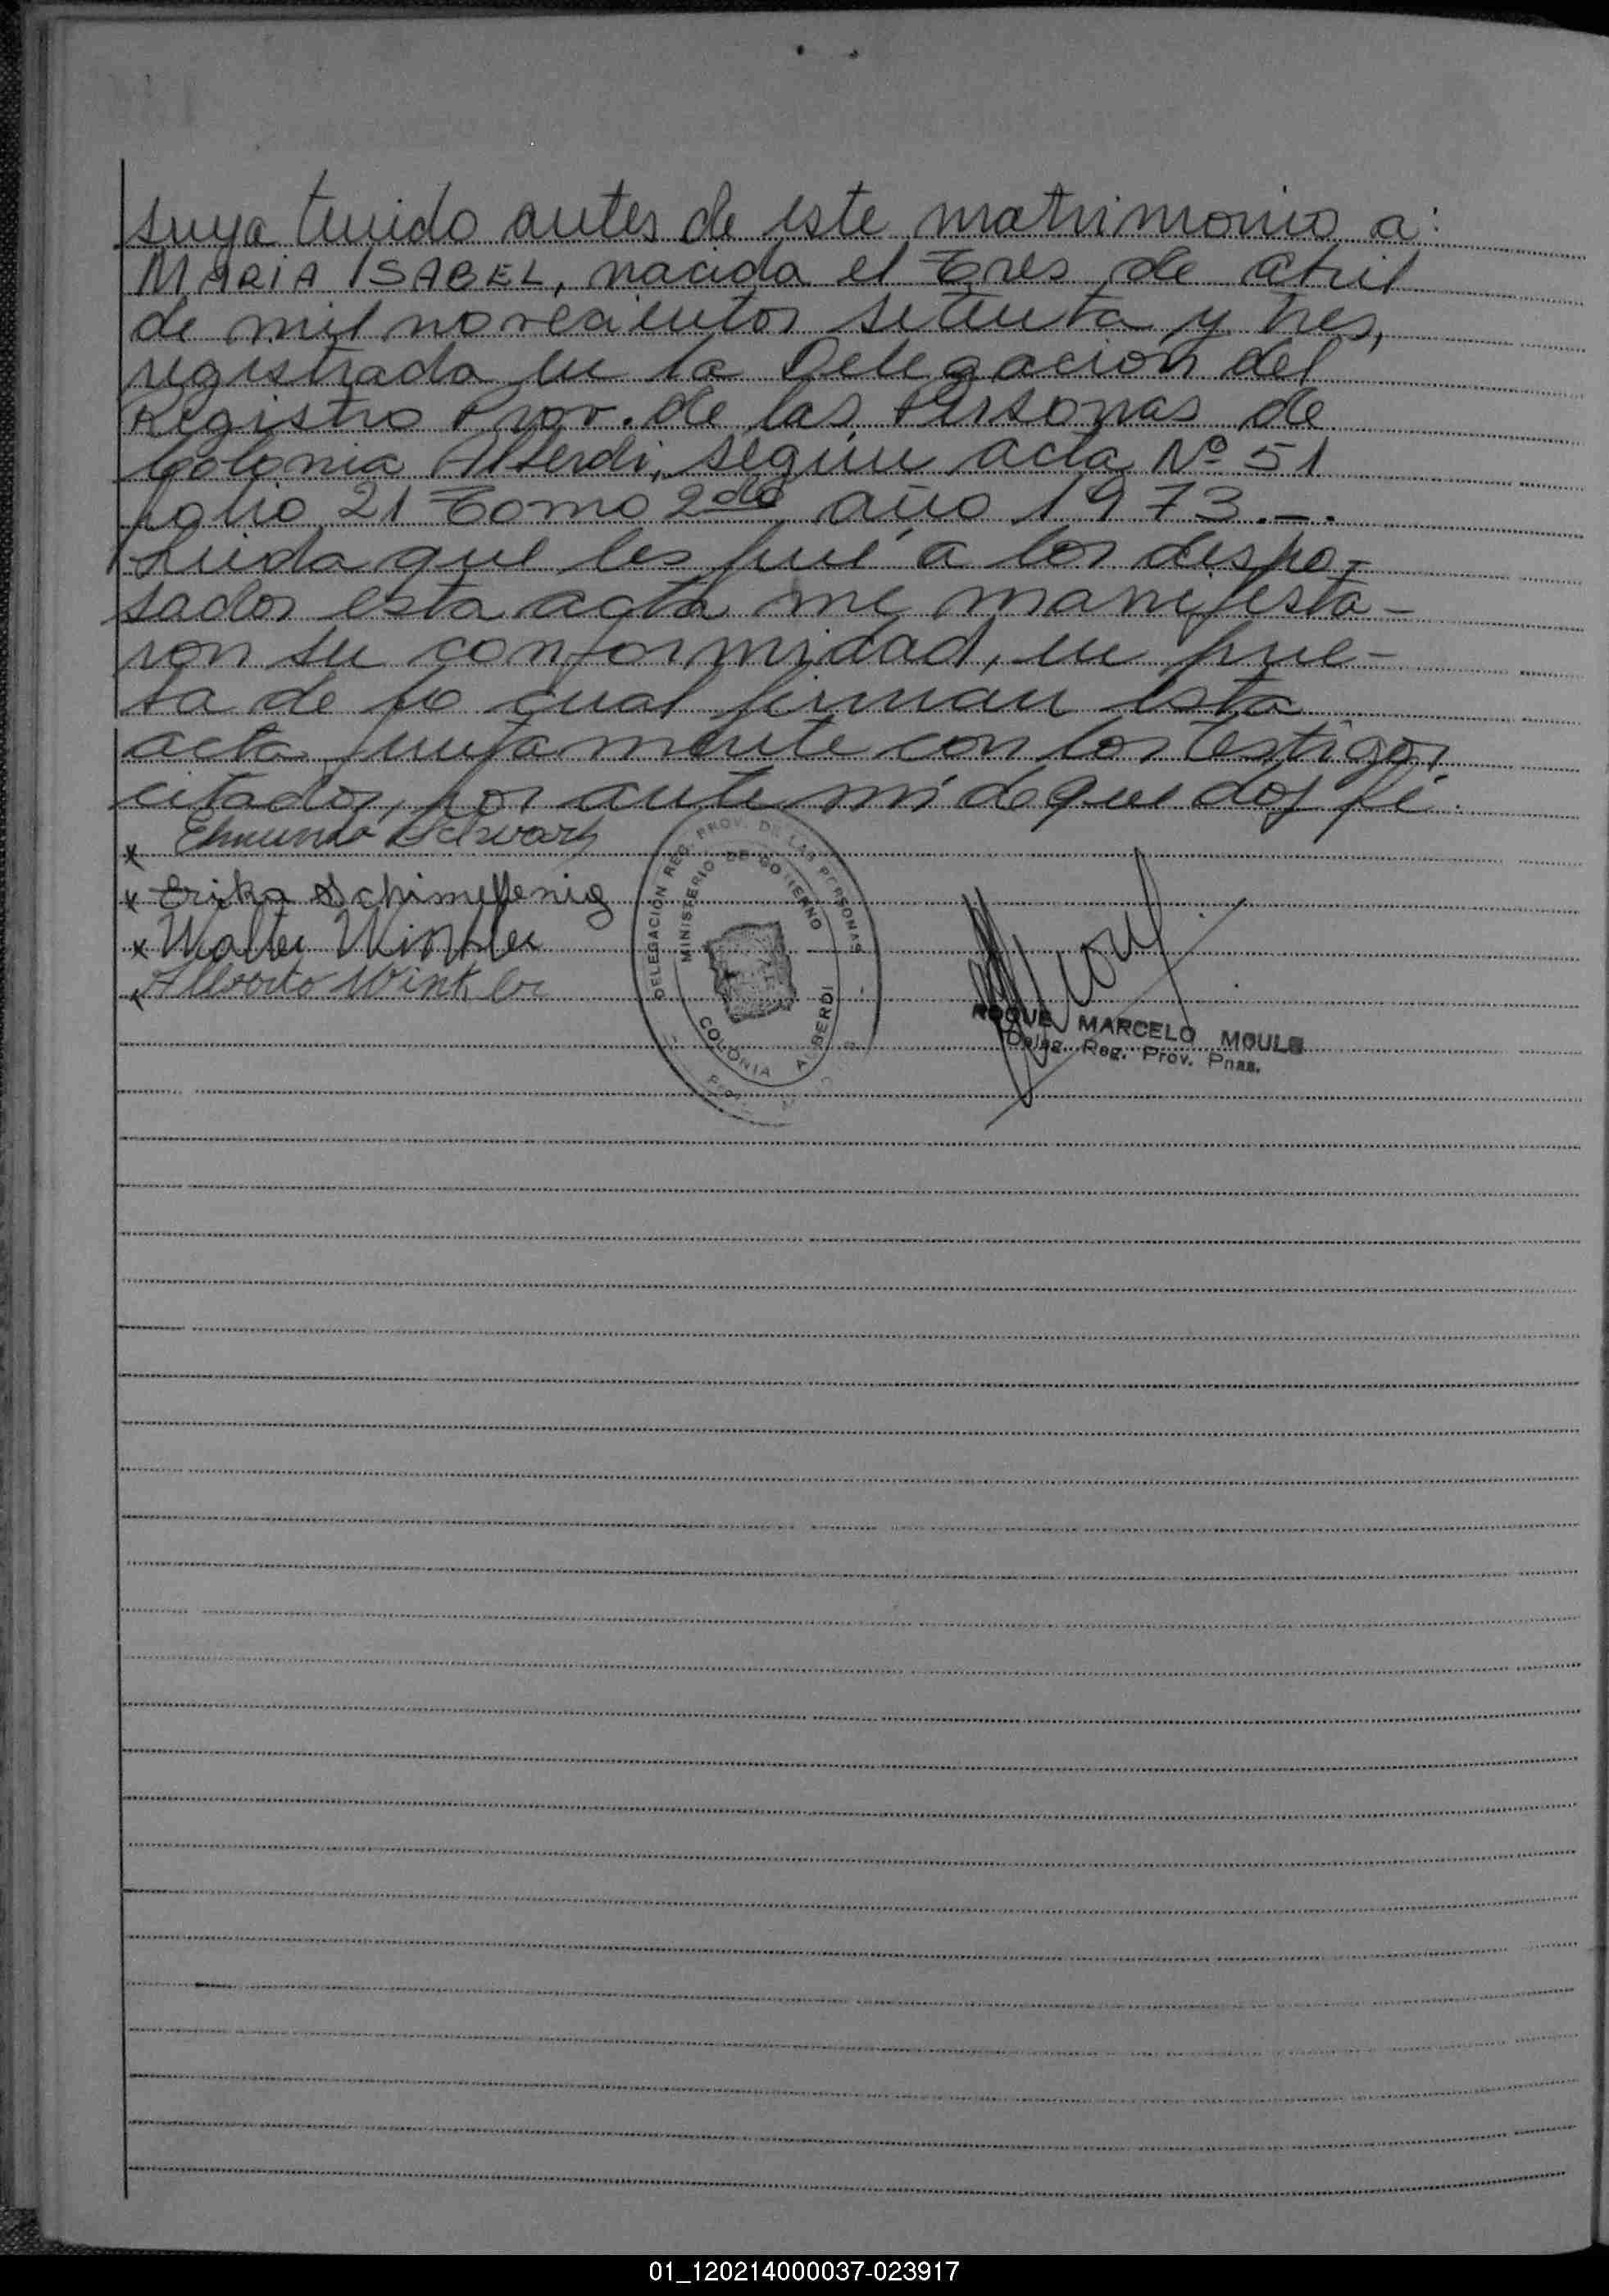 suya tenido antes de este matrimonio a:
MARIA ISABEL, nacida el Tres de abril
de mil novecientos setenta y tres,
registrada en la Delegación del
Registro Prov. de las Personas de
Colonia Alberdi, según acta Nº 51
folio 21 Tomo 2do año 1973.-.
Leida que les fué a los despo-
sados esta acta me manifesta-
ron su conformidad, en prue-
ba de lo cual firman esta
acta juntamente con los testigos
citados, por ante mí de que doy fé.
x Edmundo Schwarz
x Erika Schimelfenig
x Walter Winkler
x Alberto Winkler
DELEGACIÓN REG. PROV. DE LAS PERSONAS
MINISTERIO DE GOBIERNO
COLONIA ALBERDI
ROQUE MARCELO MOULE
Deleg. Reg. Prov. Pnas.
01_120214000037-023917